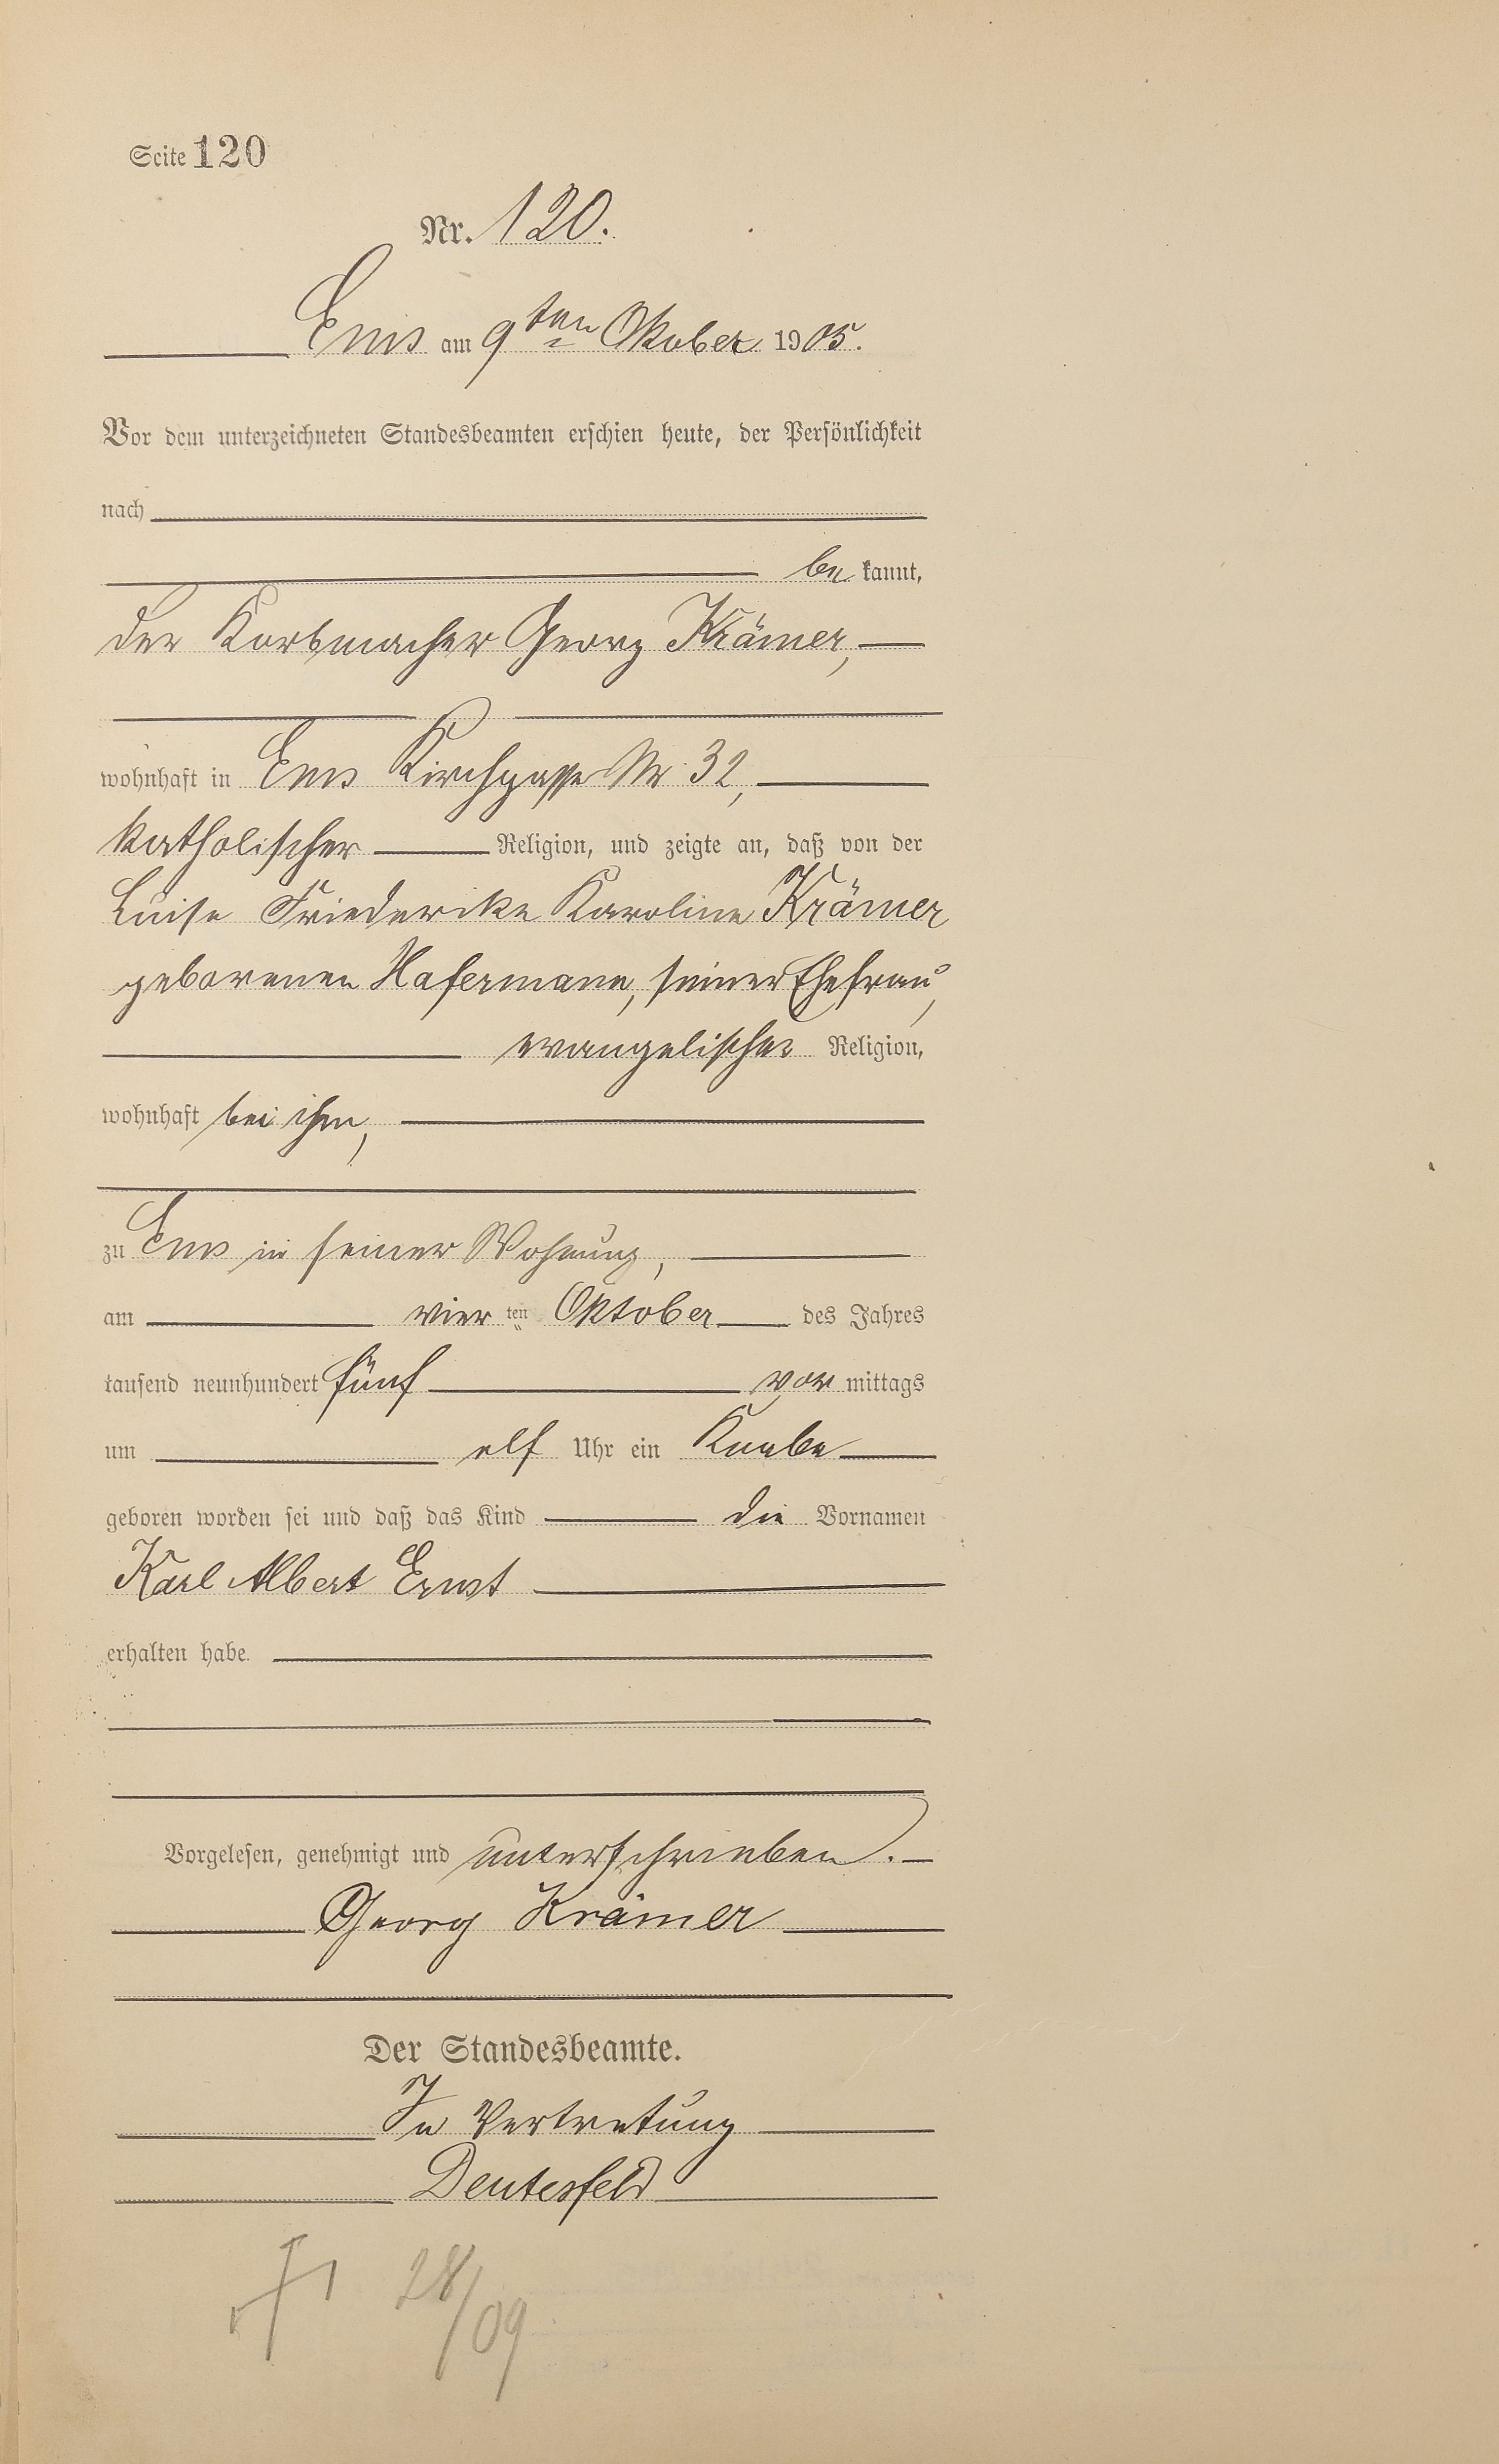 Seite 120
Nr. 120.
Ems am 9ten Oktober 1905.
Vor dem unterzeichneten Standesbeamten erschien heute, der Persönlichkeit
nach
be kannt,
der Korbmacher Georg Krämer,
wohnhaft in Ems Kirchgasse Nr 32,
katholischer Religion, und zeigte an, daß von der
Luise Friederike Karoline Krämer
geborenen Hafermann, seiner Ehefrau,
evangelischer Religion,
wohnhaft bei ihm,
zu Ems in seiner Wohnung,
am vier ten Oktober des Jahres
tausend neunhundert fünf vor mittags
um elf Uhr ein Knabe
geboren worden sei und daß das Kind die Vornamen
Karl Albert Ernst
erhalten habe.
Vorgelesen, genehmigt und unterschrieben.
Georg Krämer
Der Standesbeamte.
In Vertretung
Deutesfeld
28/09